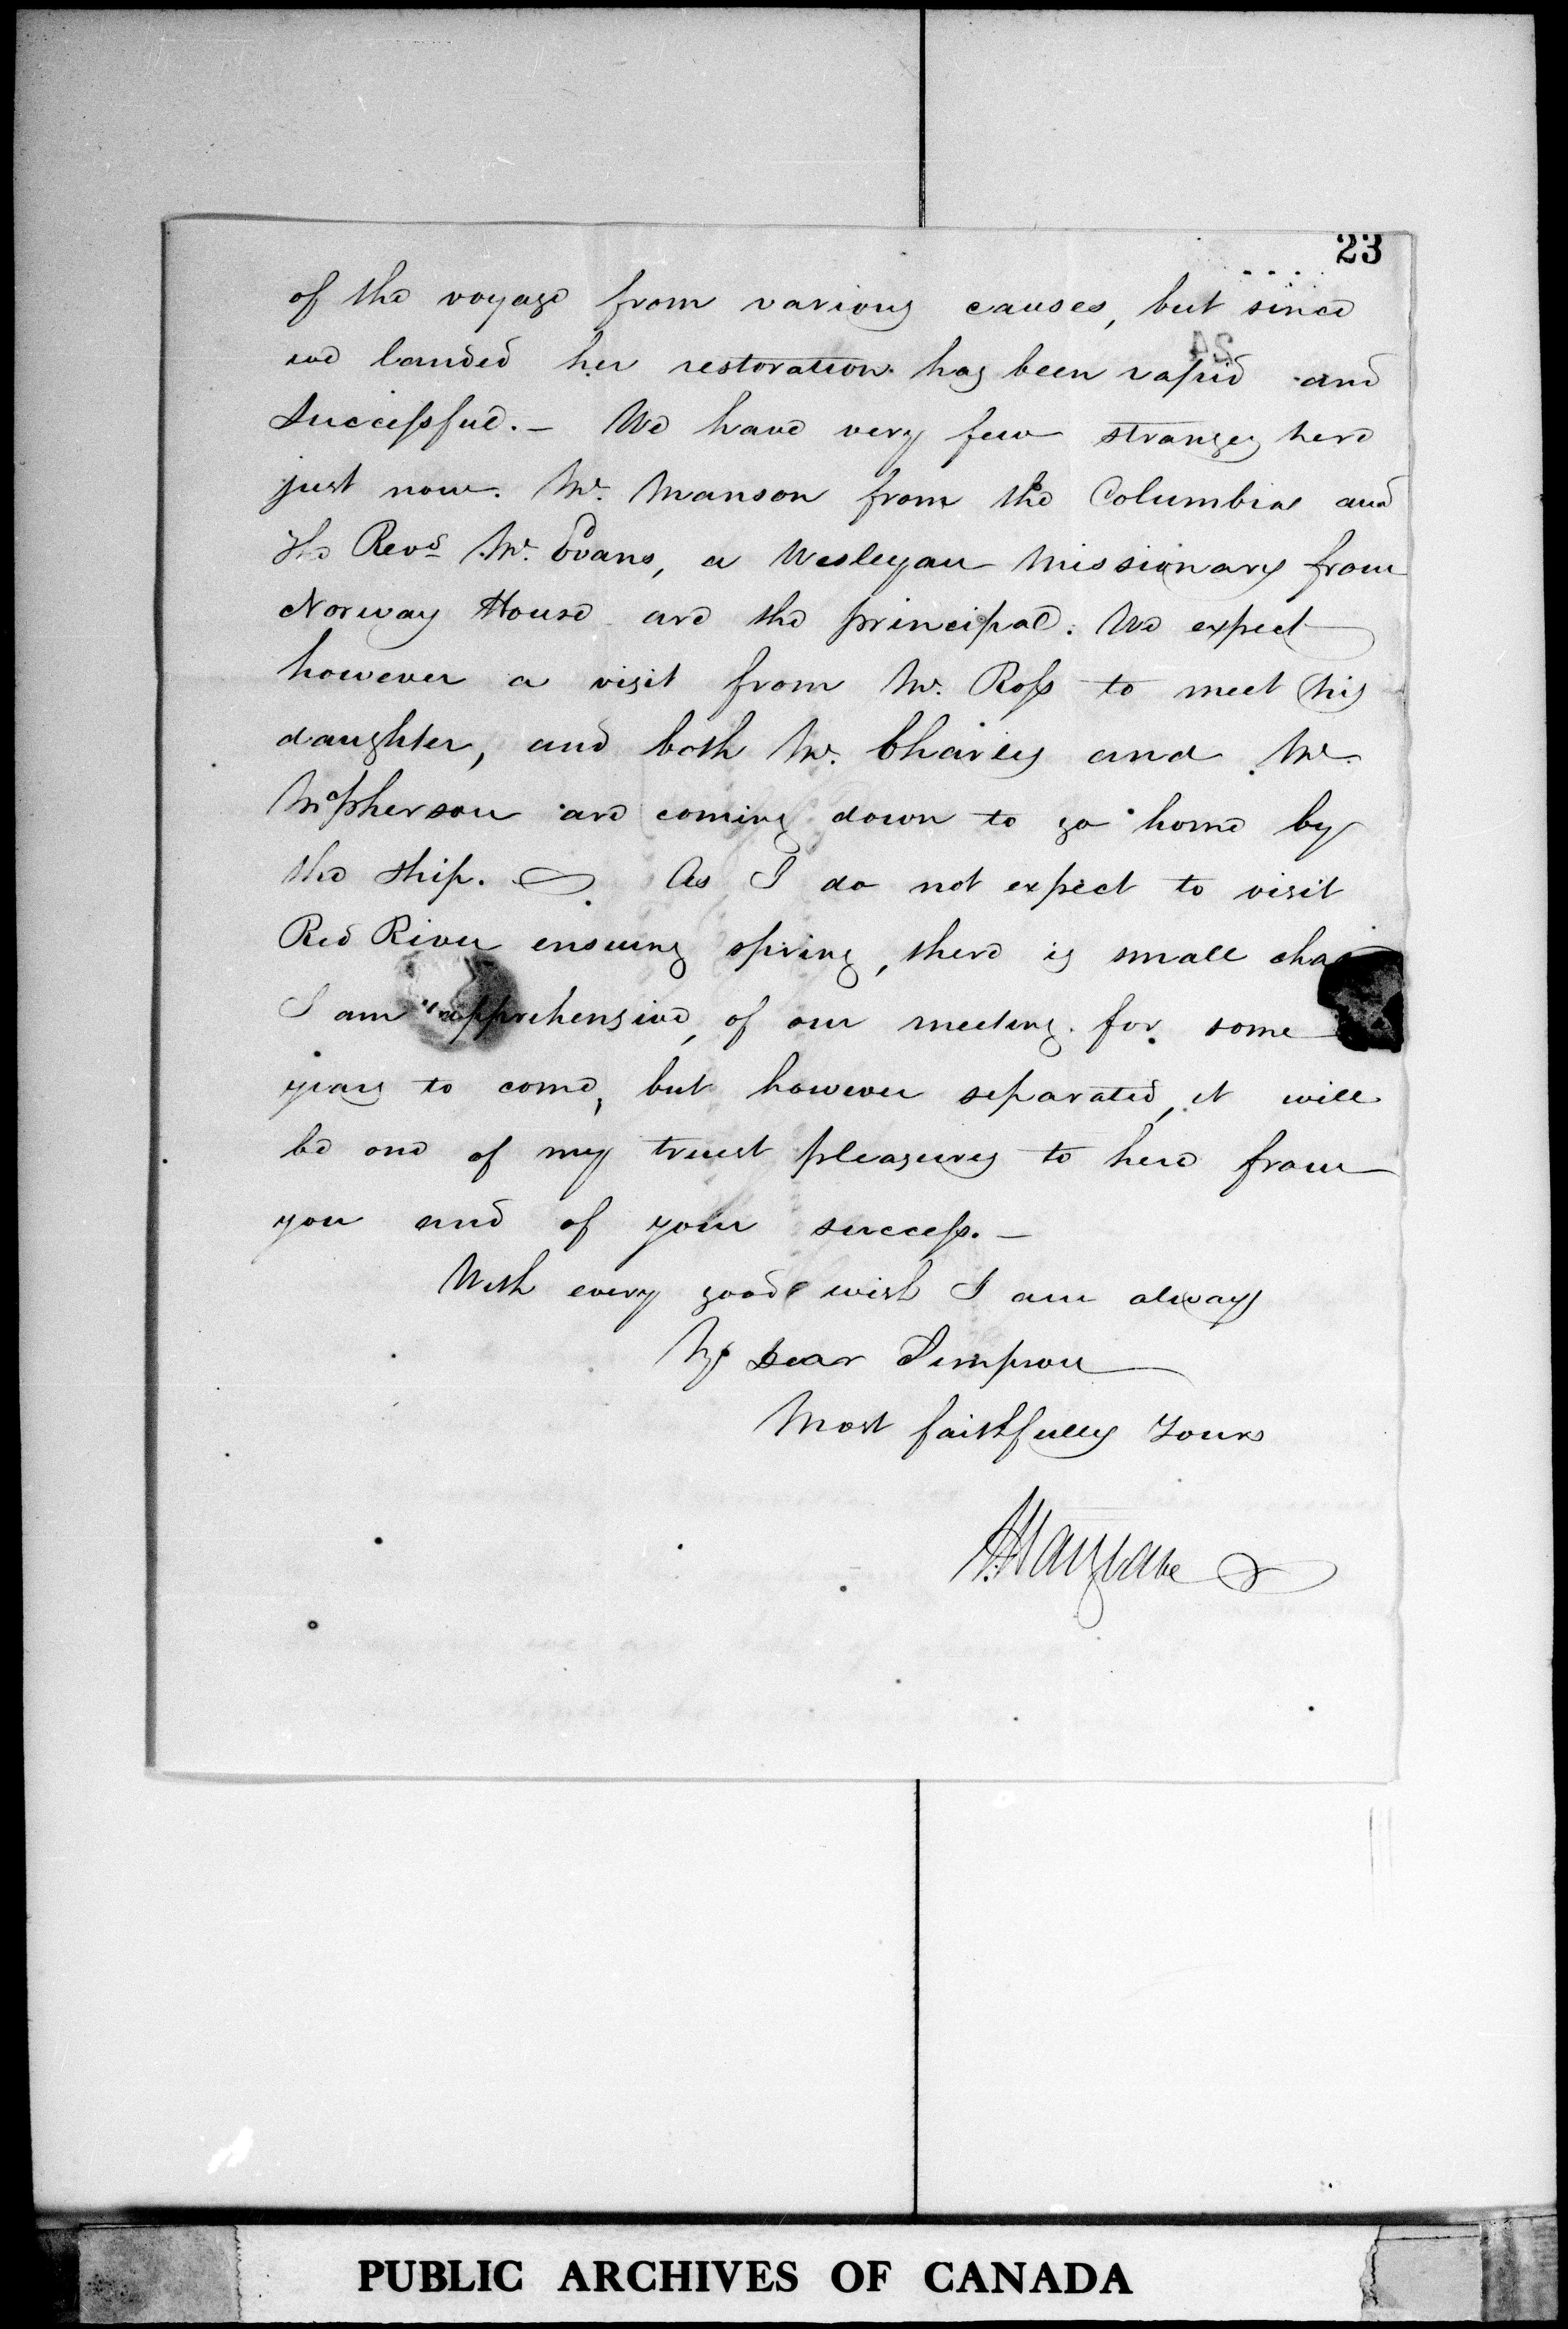 23
of the voyage from various causes, but since
we landed her restoration has been rapid and
successful. — We have very few strangers here
just now. Mr. Manson from the Columbia and
the Revd Mr. Evans, a Wesleyan Missionary from
Norway House are the principal. We expect
however a visit from Mr. Ross to meet his
daughter, and both Mr. Charles and Mr.
McPherson are coming down to go home by
the ship. — As I do not expect to visit
Red River ensuing spring, there is small cha
I am apprehensive, of our meeting for some
years to come, but however separated, it will
be one of my truest pleasures to hear from
you and of your success. —
With every good wish I am always
My Dear Simpson
Most faithfully Yours
J. Hargrave
PUBLIC ARCHIVES OF CANADA